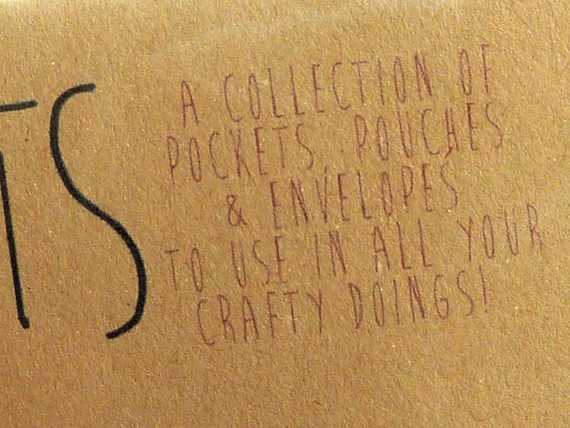 TS
A COLLECTION OF
POCKETS, POUCHES
& ENVELOPES
TO USE IN ALL YOUR
CRAFTY DOINGS!